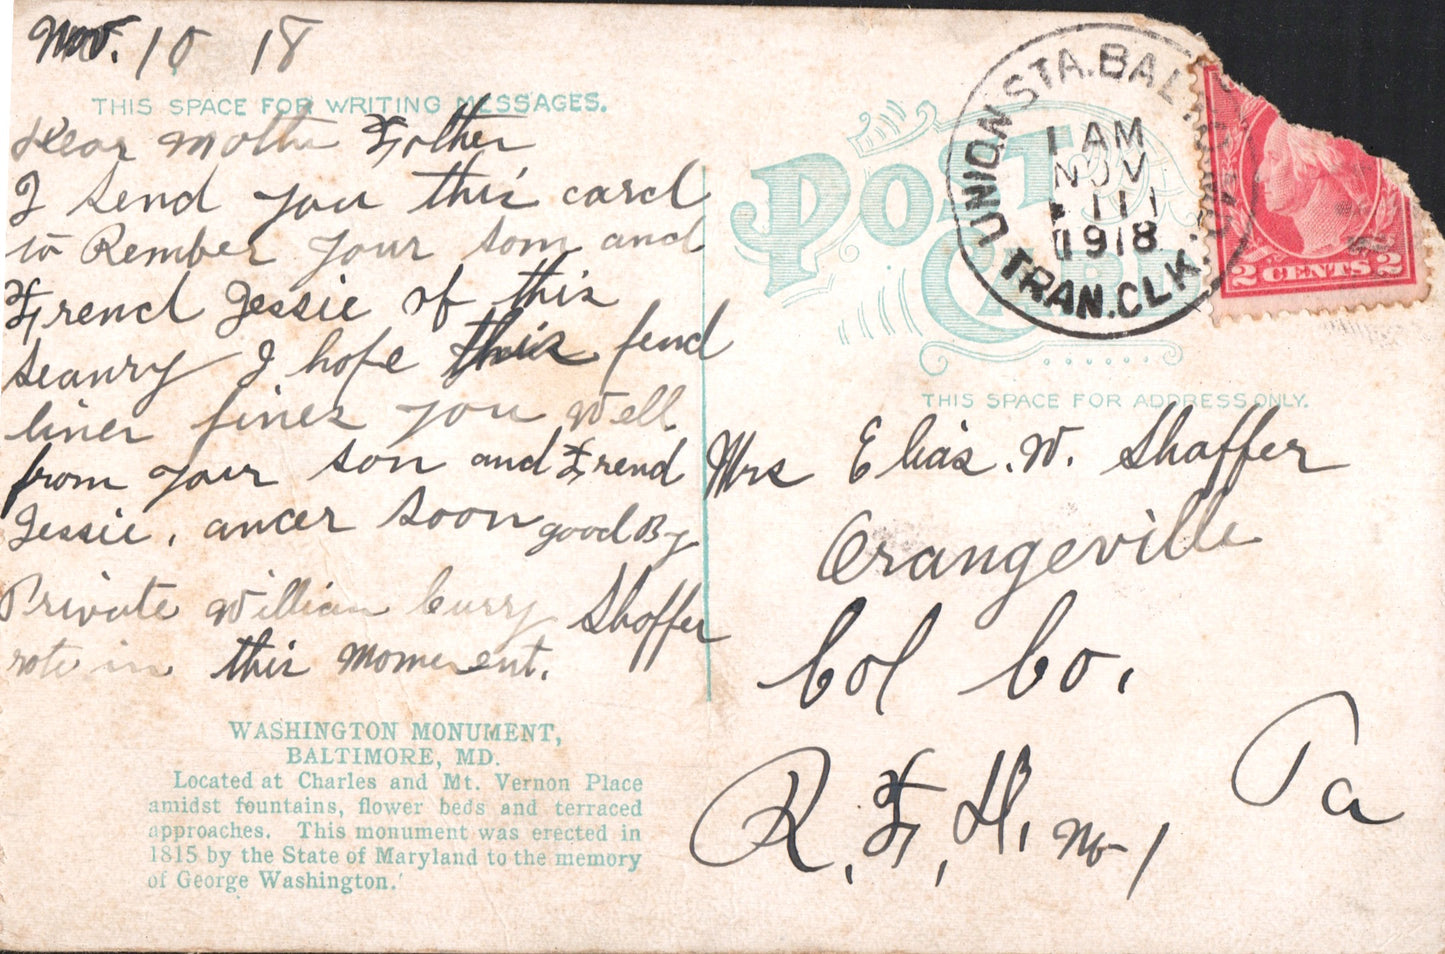 Nov. 10 18
THIS SPACE FOR WRITING MESSAGES.
Dear Mother Father
I send you this card
to Rember your som and
Frend Jessie of this
seanry I hope this fend
liner fines you well
from your son and Frend
Jessie, ancer soon good By
Private William Curry Shaffer
rote in this moment.
WASHINGTON MONUMENT,
BALTIMORE, MD.
Located at Charles and Mt. Vernon Place
amidst fountains, flower beds and terraced
approaches. This monument was erected in
1815 by the State of Maryland to the memory
of George Washington.
POST
CARD
UNION STA. BALTIMORE, MD.
1 AM
NOV
11
1918
TRAN. CLK.
2 CENTS 2
THIS SPACE FOR ADDRESS ONLY.
Mrs Elias. W. Shaffer
Orangeville
Col Co.
Pa
R. F, D, No 1